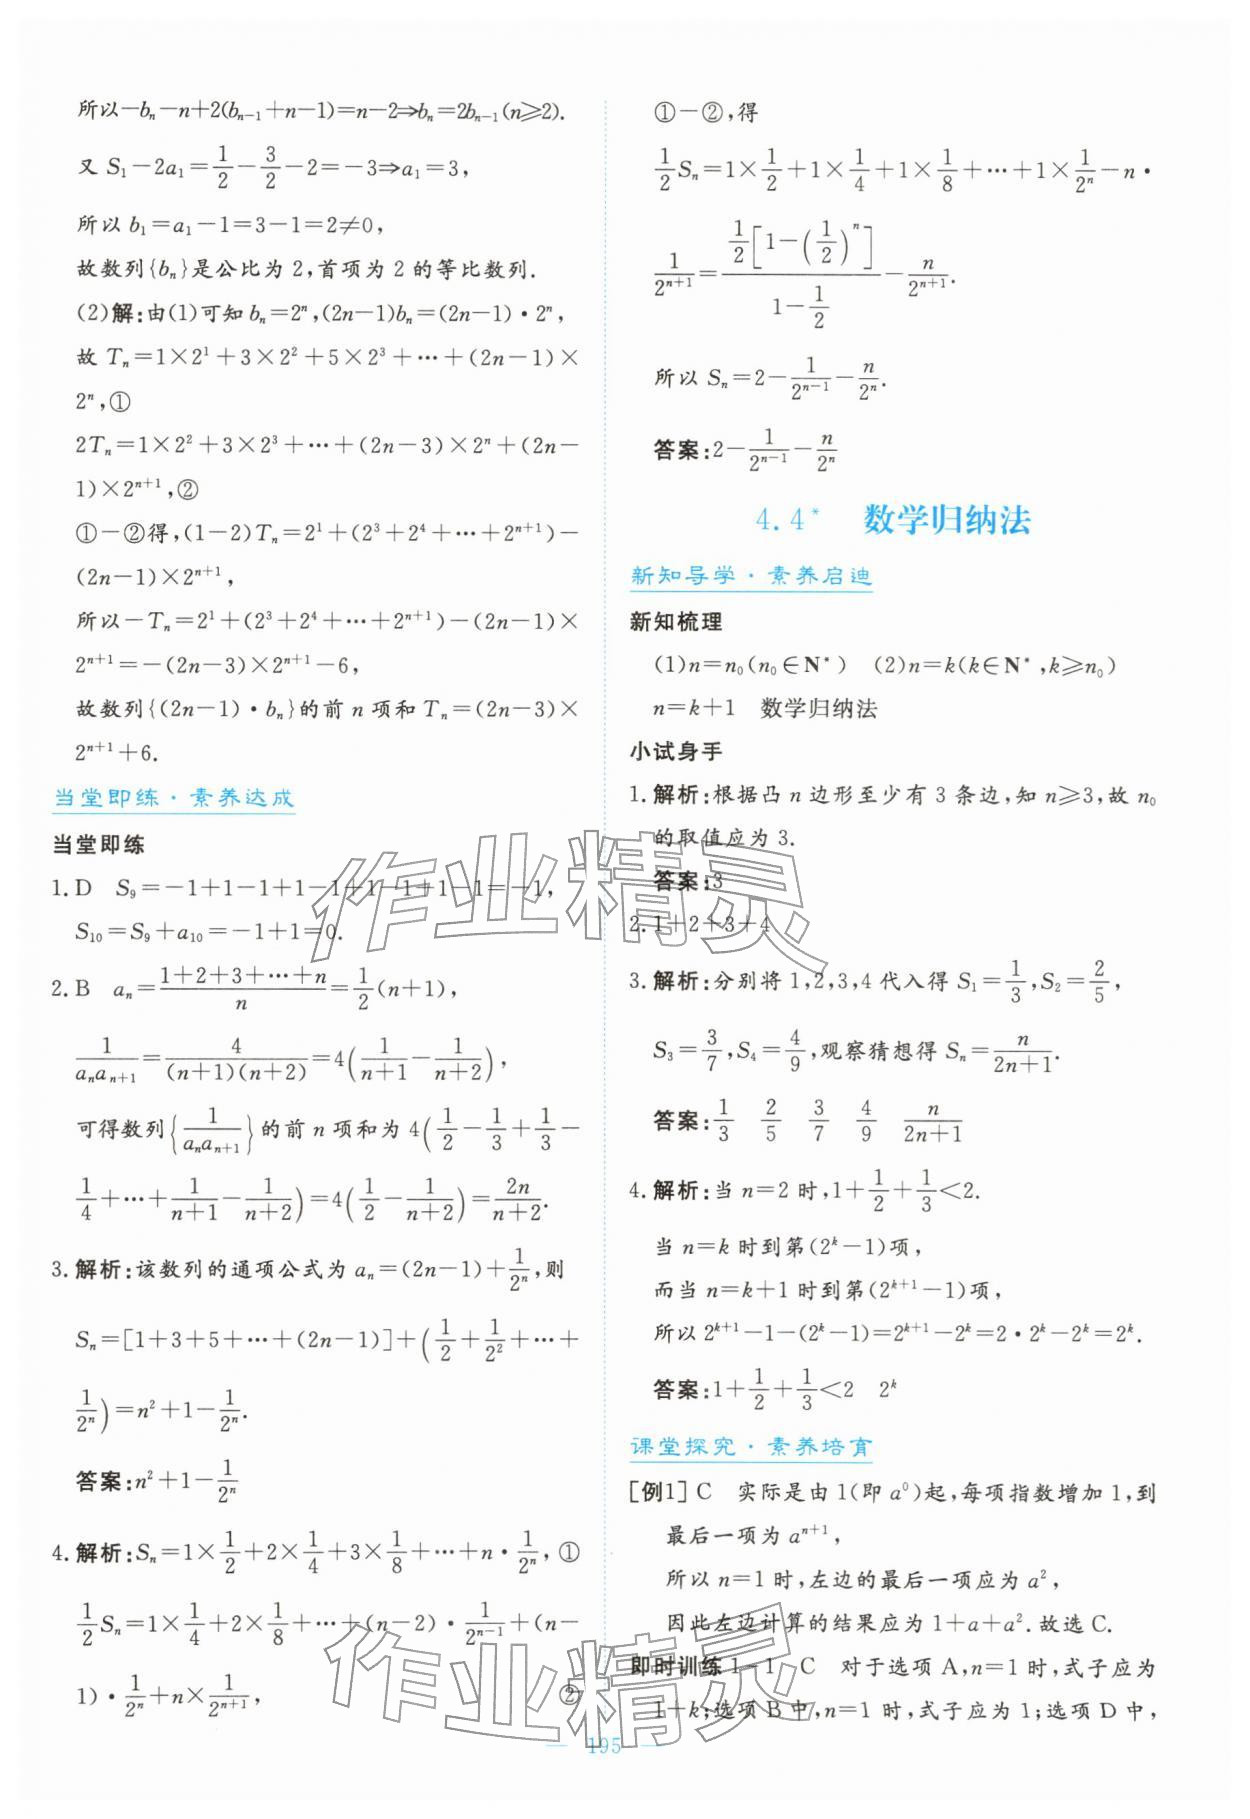 所以-bₙ-n+2(bₙ₋₁+n-1)=n-2⇒bₙ=2bₙ₋₁(n≥2).
又 S₁-2a₁=1/2-3/2-2=-3⇒a₁=3,
所以 b₁=a₁-1=3-1=2≠0,
故数列{bₙ}是公比为 2,首项为 2 的等比数列.
(2)解:由(1)可知 bₙ=2ⁿ,(2n-1)bₙ=(2n-1)·2ⁿ,
故 Tₙ=1×2¹+3×2²+5×2³+…+(2n-1)×
2ⁿ,①
2Tₙ=1×2²+3×2³+…+(2n-3)×2ⁿ+(2n-
1)×2ⁿ⁺¹,②
①-②得,(1-2)Tₙ=2¹+(2³+2⁴+…+2ⁿ⁺¹)-
(2n-1)×2ⁿ⁺¹,
所以-Tₙ=2¹+(2³+2⁴+…+2ⁿ⁺¹)-(2n-1)×
2ⁿ⁺¹=-(2n-3)×2ⁿ⁺¹-6,
故数列{(2n-1)·bₙ}的前 n 项和 Tₙ=(2n-3)×
2ⁿ⁺¹+6.
当堂即练·素养达成
当堂即练
1.D S₉=-1+1-1+1-1+1-1+1-1=-1,
S₁₀=S₉+a₁₀=-1+1=0.
2.B aₙ=(1+2+3+…+n)/n=1/2(n+1),
1/(aₙaₙ₊₁)=4/((n+1)(n+2))=4(1/(n+1)-1/(n+2)),
可得数列{1/(aₙaₙ₊₁)}的前 n 项和为 4(1/2-1/3+1/3-
1/4+…+1/(n+1)-1/(n+2))=4(1/2-1/(n+2))=2n/(n+2).
3.解析:该数列的通项公式为 aₙ=(2n-1)+1/2ⁿ,则
Sₙ=[1+3+5+…+(2n-1)]+(1/2+1/2²+…+
1/2ⁿ)=n²+1-1/2ⁿ.
答案:n²+1-1/2ⁿ
4.解析:Sₙ=1×1/2+2×1/4+3×1/8+…+n·1/2ⁿ,①
1/2Sₙ=1×1/4+2×1/8+…+(n-2)·1/2ⁿ⁻¹+(n-
1)·1/2ⁿ+n×1/2ⁿ⁺¹,②
①-②,得
1/2Sₙ=1×1/2+1×1/4+1×1/8+…+1×1/2ⁿ-n·
1/2ⁿ⁺¹=(1/2[1-(1/2)ⁿ])/(1-1/2)-n/2ⁿ⁺¹.
所以 Sₙ=2-1/2ⁿ⁻¹-n/2ⁿ.
答案:2-1/2ⁿ⁻¹-n/2ⁿ
4.4* 数学归纳法
新知导学·素养启迪
新知梳理
(1)n=n₀(n₀∈N*) (2)n=k(k∈N*,k≥n₀)
n=k+1 数学归纳法
小试身手
1.解析:根据凸 n 边形至少有 3 条边,知 n≥3,故 n₀
的取值应为 3.
答案:3
2.1+2+3+4
3.解析:分别将 1,2,3,4 代入得 S₁=1/3,S₂=2/5,
S₃=3/7,S₄=4/9,观察猜想得 Sₙ=n/(2n+1).
答案:1/3 2/5 3/7 4/9 n/(2n+1)
4.解析:当 n=2 时,1+1/2+1/3<2.
当 n=k 时到第(2ᵏ-1)项,
而当 n=k+1 时到第(2ᵏ⁺¹-1)项,
所以 2ᵏ⁺¹-1-(2ᵏ-1)=2ᵏ⁺¹-2ᵏ=2·2ᵏ-2ᵏ=2ᵏ.
答案:1+1/2+1/3<2 2ᵏ
课堂探究·素养培育
[例1] C 实际是由 1(即 a⁰)起,每项指数增加 1,到
最后一项为 aⁿ⁺¹,
所以 n=1 时,左边的最后一项应为 a²,
因此左边计算的结果应为 1+a+a².故选 C.
即时训练 1-1 C 对于选项 A,n=1 时,式子应为
1+k;选项 B 中,n=1 时,式子应为 1;选项 D 中,
— 195 —
作业精灵
作业精灵